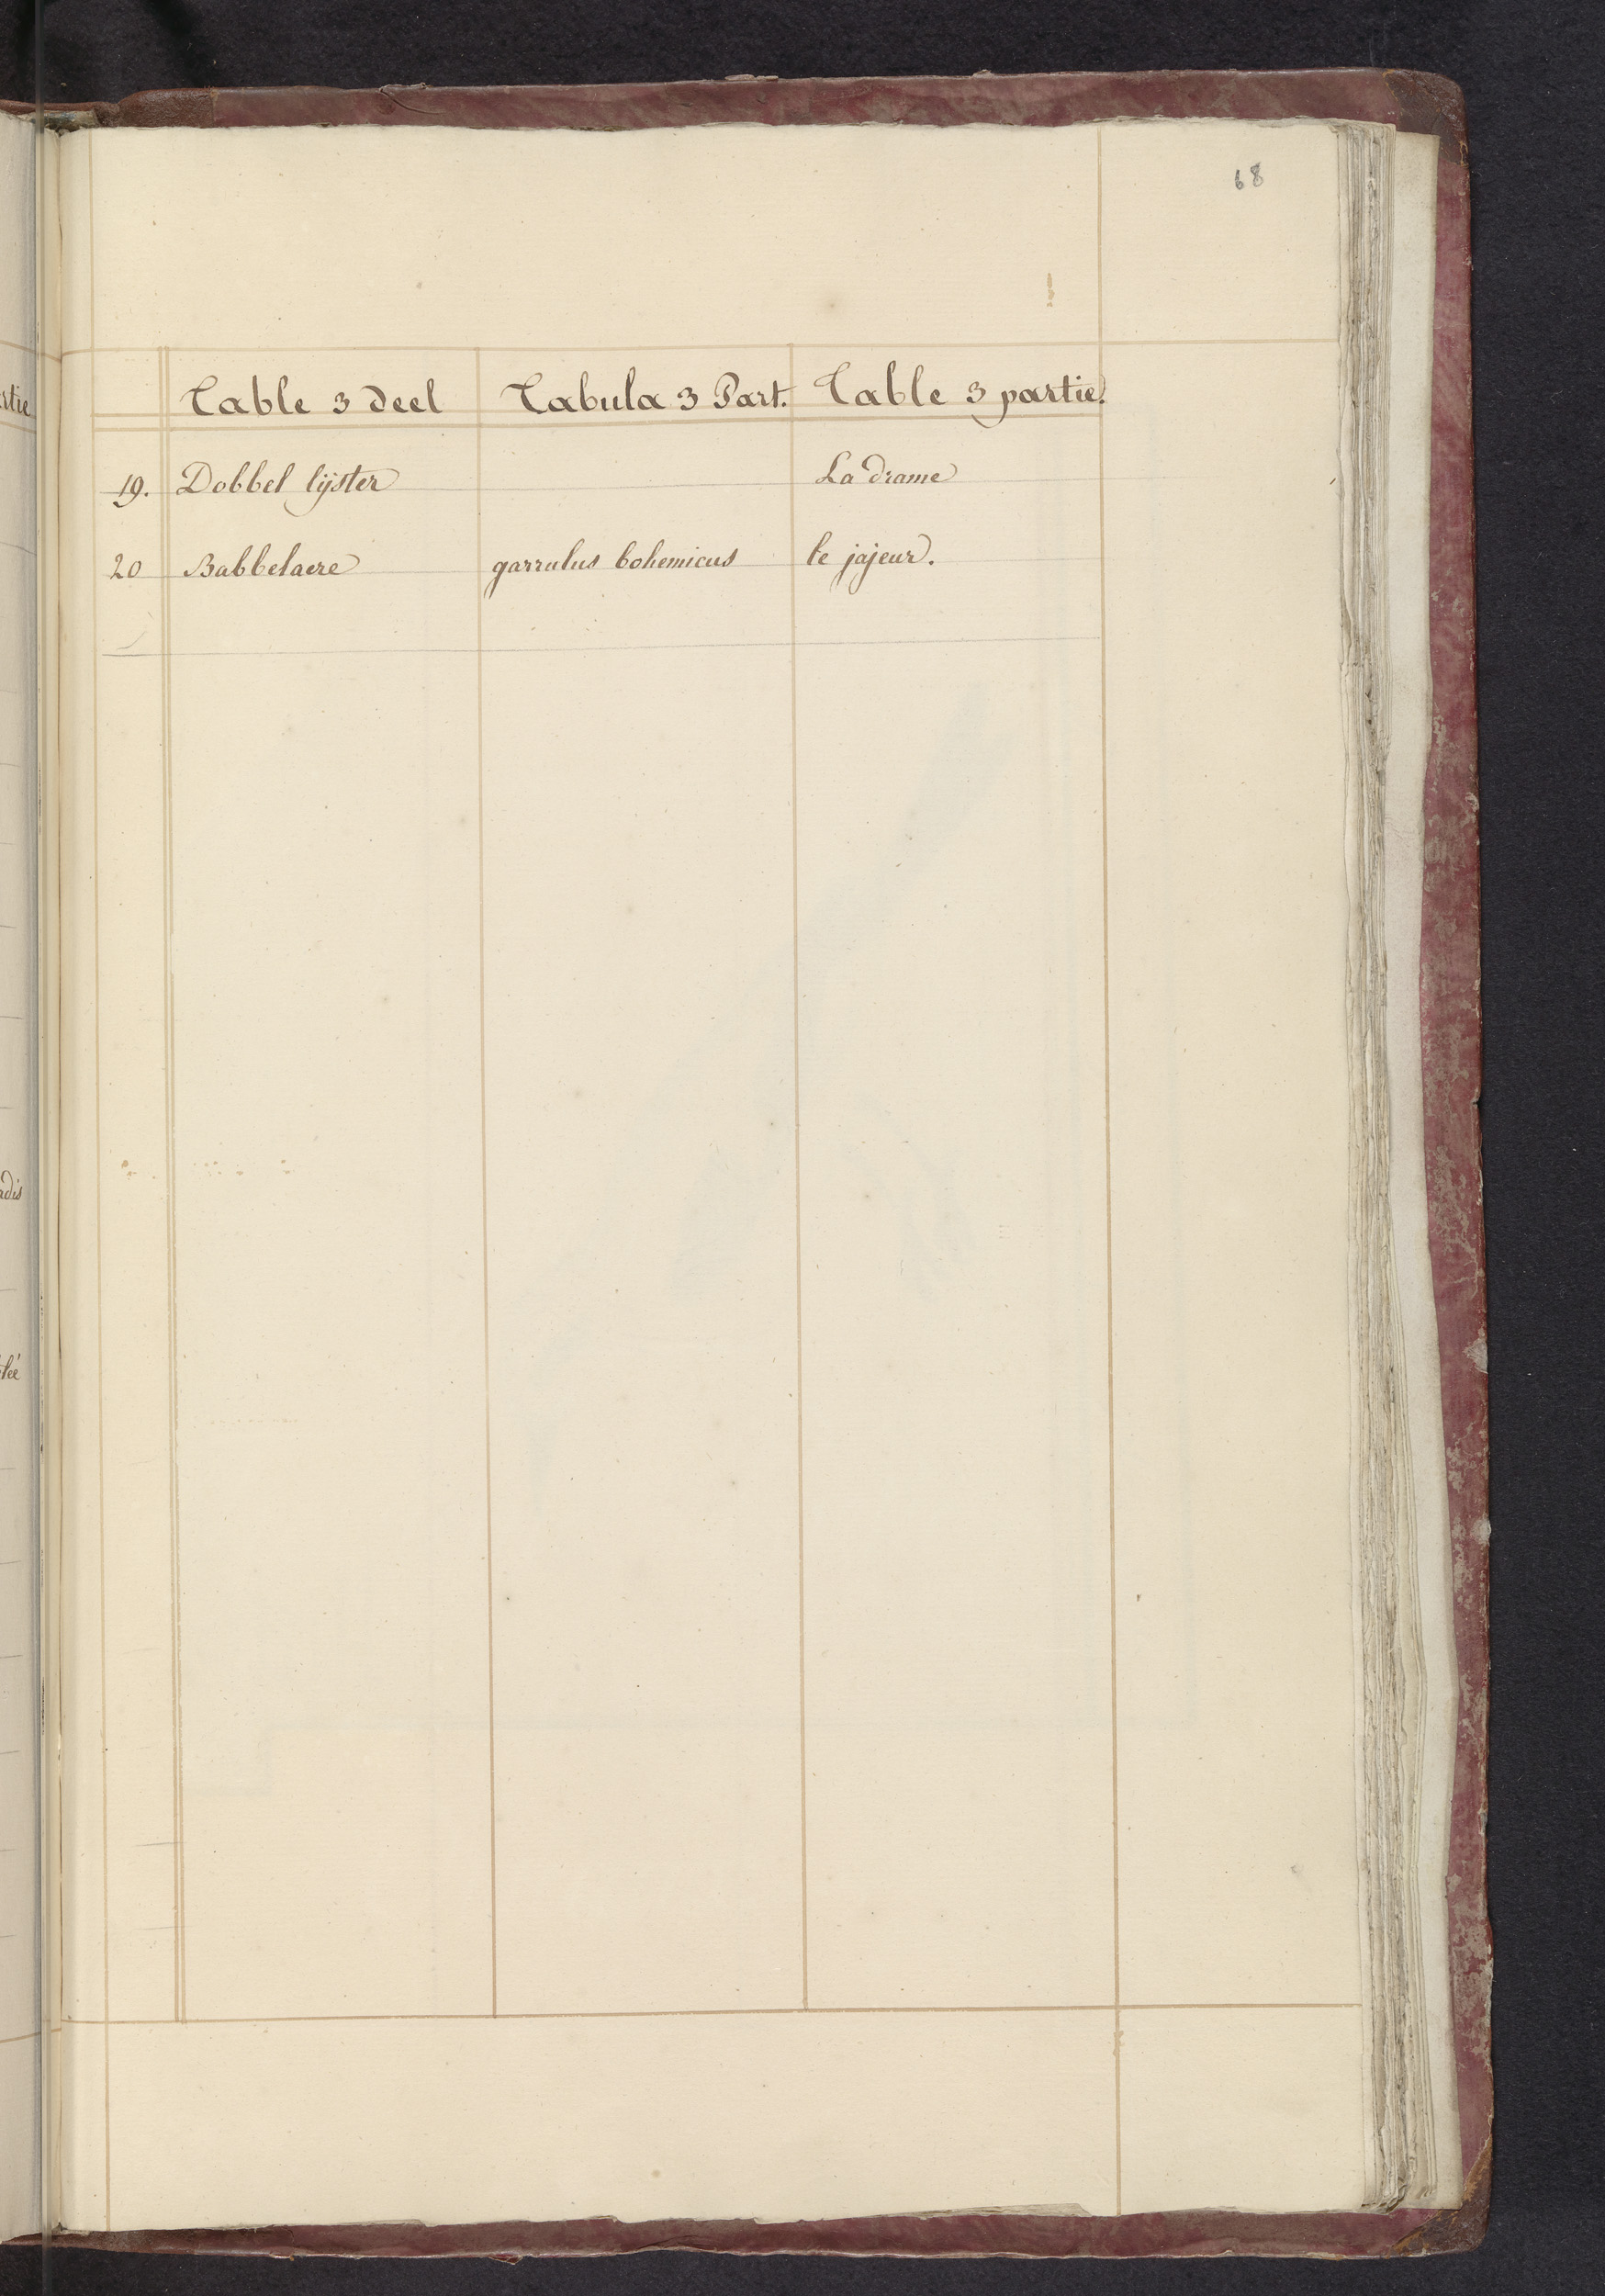 68
Table 3 deel Tabula 3 Part. Table 3 partie.
19. Dobbel lijster La drame
20 Babbelaere garrulus bohemicus le jajeur.